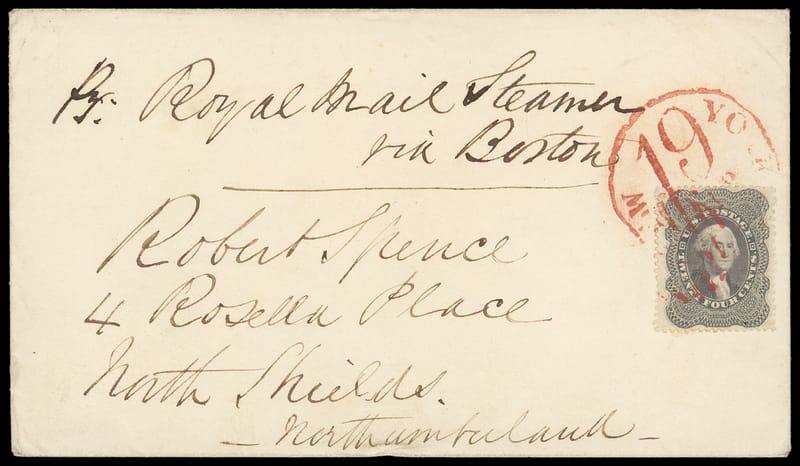 Pr. Royal Mail Steamer
via Boston
Robert Spence
4 Rosella Place
North Shields.
- Northumberland -
19
YORK
U.S. POSTAGE
TWENTY FOUR CENTS